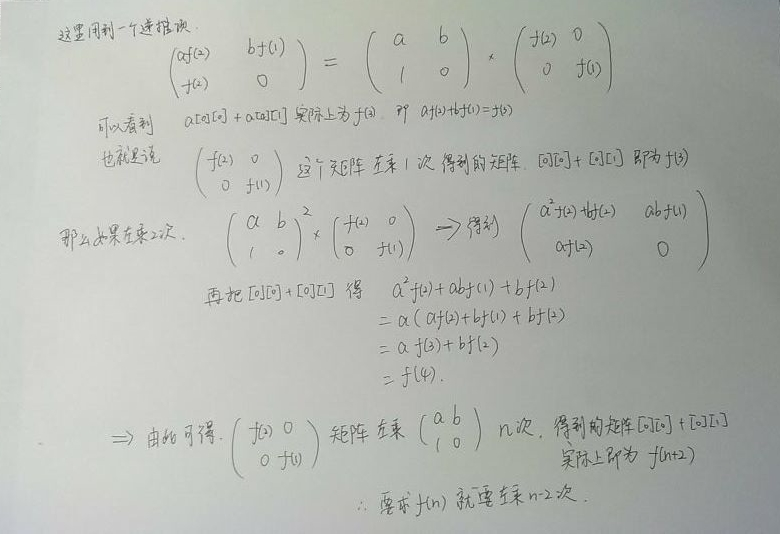 这里用到一个递推项.
( af(2) bf(1) ; f(2) 0 ) = ( a b ; 1 0 ) × ( f(2) 0 ; 0 f(1) )
可以看到 a[0][0] + a[0][1] 实际上为 f(3). 即 af(2)+bf(1)=f(3)
也就是说 ( f(2) 0 ; 0 f(1) ) 这个矩阵 左乘1次 得到的矩阵. [0][0] + [0][1] 即为 f(3)
那么如果左乘2次. ( a b ; 1 0 )² × ( f(2) 0 ; 0 f(1) ) ⇒ 得到 ( a²f(2)+bf(2) abf(1) ; af(2) 0 )
再把 [0][0] + [0][1] 得 a²f(2)+abf(1)+bf(2)
= a(af(2)+bf(1)+bf(2)
= af(3)+bf(2)
= f(4).
⇒ 由此可得. ( f(2) 0 ; 0 f(1) ) 矩阵 左乘 ( a b ; 1 0 ) n次. 得到的矩阵[0][0] + [0][1]
实际上即为 f(n+2)
∴ 要求 f(n) 就要左乘 n-2 次.